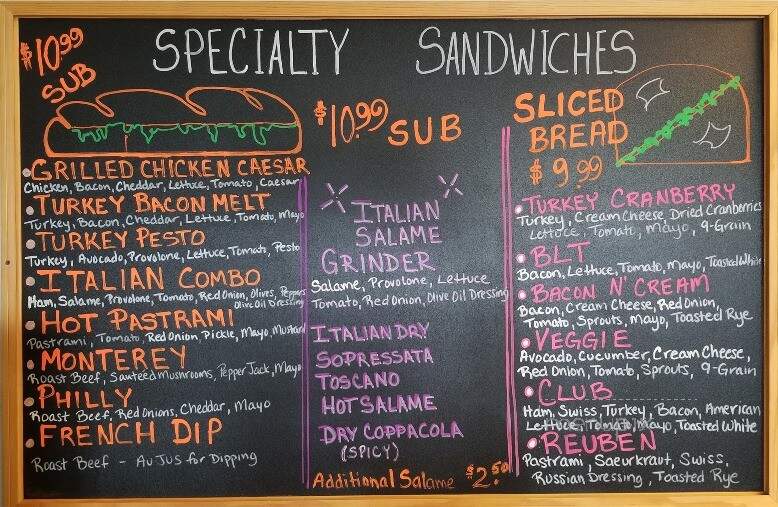 SPECIALTY SANDWICHES
$10.99
SUB
GRILLED CHICKEN CAESAR
Chicken, Bacon, Cheddar, Lettuce, Tomato, Caesar
TURKEY BACON MELT
Turkey, Bacon, Cheddar, Lettuce, Tomato, Mayo
TURKEY PESTO
Turkey, Avocado, Provolone, Lettuce, Tomato, Pesto
ITALIAN COMBO
Ham, Salame, Provolone, Tomato, Red Onion, Olives, Peppers
Olive Oil Dressing
HOT PASTRAMI
Pastrami, Tomato, Red Onion, Pickle, Mayo, Mustard
MONTEREY
Roast Beef, Sauteed Mushrooms, Pepper Jack, Mayo
PHILLY
Roast Beef, Red Onions, Cheddar, Mayo
FRENCH DIP
Roast Beef - Au JUS for Dipping
$10.99 SUB
ITALIAN
SALAME
GRINDER
Salame, Provolone, Lettuce
Tomato, Red Onion, Olive Oil Dressing
ITALIAN DRY
SOPRESSATA
TOSCANO
HOT SALAME
DRY COPPACOLA
(SPICY)
Additional Salame $2.50
SLICED
BREAD
$9.99
TURKEY CRANBERRY
Turkey, Cream Cheese, Dried Cranberries
Lettuce, Tomato, Mayo, 9-Grain
BLT
Bacon, Lettuce, Tomato, Mayo, Toasted White
BACON N' CREAM
Bacon, Cream Cheese, Red Onion,
Tomato, Sprouts, Mayo, Toasted Rye
VEGGIE
Avocado, Cucumber, Cream Cheese,
Red Onion, Tomato, Sprouts, 9-Grain
CLUB
Ham, Swiss, Turkey, Bacon, American
Lettuce, Tomato, Mayo, Toasted White
REUBEN
Pastrami, Saeurkraut, Swiss,
Russian Dressing, Toasted Rye